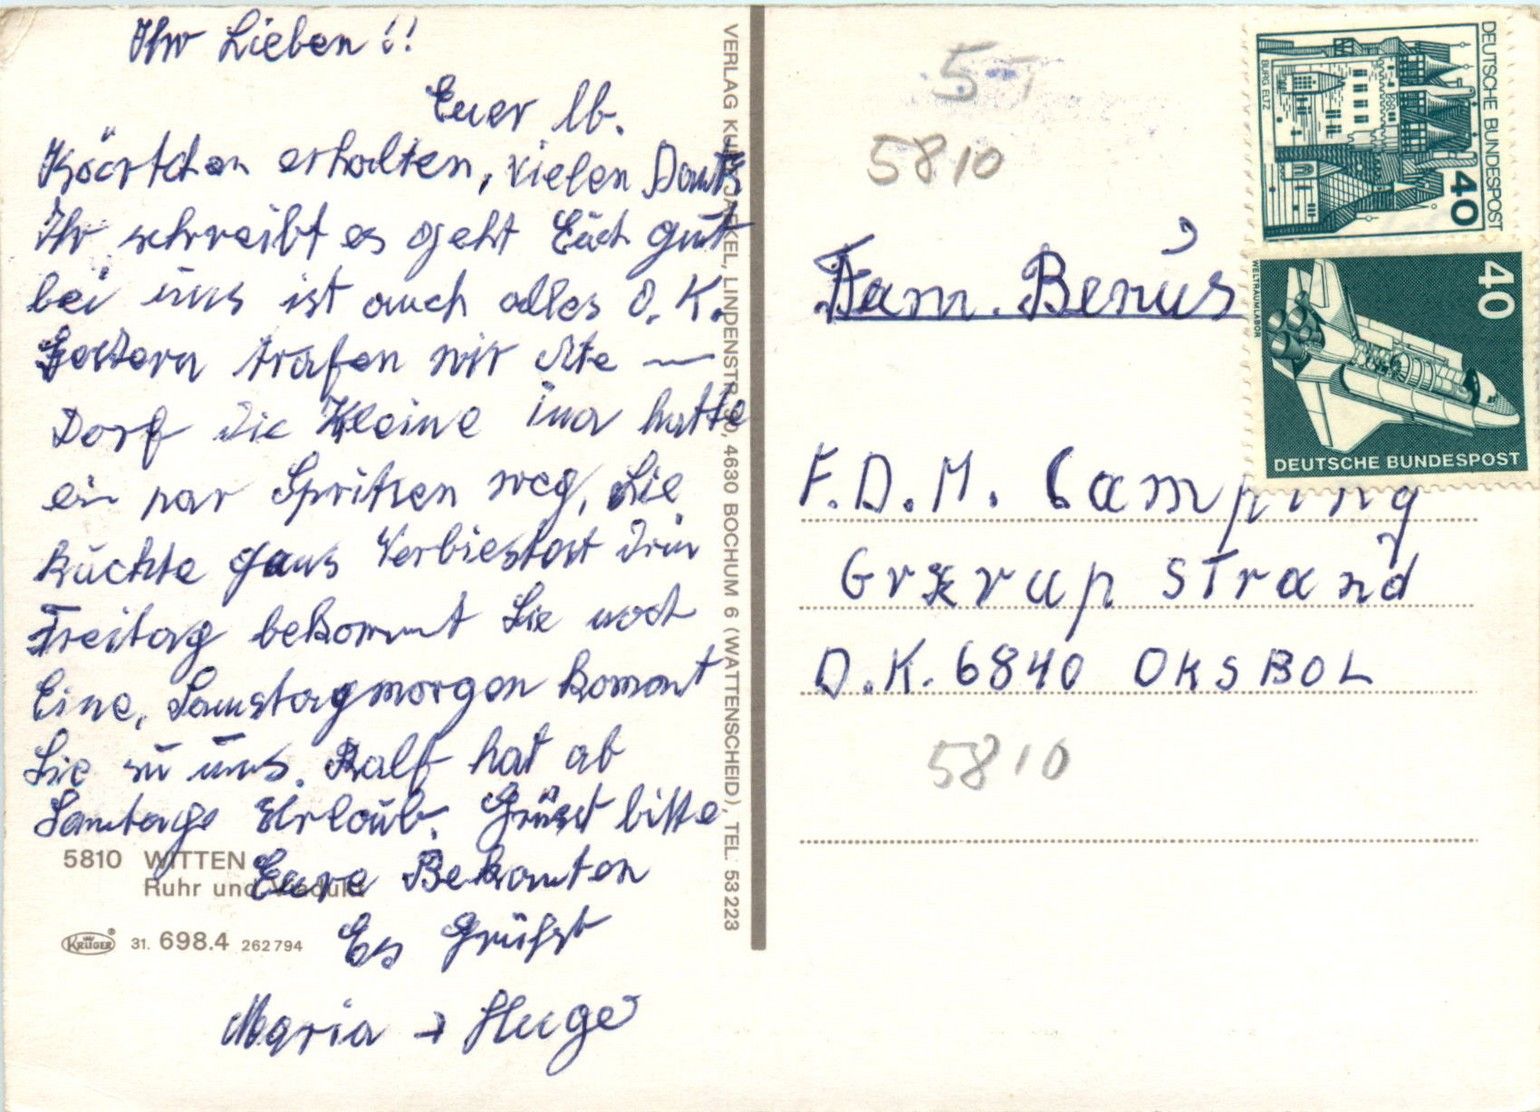 Ihr Lieben!!
Euer lb.
Käärtchen erhalten, vielen Dank
Ihr schreibt es geht Euch gut
bei uns ist auch alles O.K.
Gestern trafen wir Ute —
Dorf die Kleine Ina hatte
ein par Spritzen weg, Sie
kuckte ganz Verbiestert Drin
Freitag bekommt Sie noch
Eine, Samstagmorgen kommt
Sie zu uns. Ralf hat ab
Samtags Urlaub. Grüsst bitte
Eure Bekanten
Es Grüßt
Maria + Hugo
5810 WITTEN
Ruhr und Viadukt
KRÜGER 31. 698.4 262794
LINDENSTR. 4630 BOCHUM 6 (WATTENSCHEID), TEL. 53223
5810
Fam. Benus
F.D.M. Camping
Grærup STrand
D.K. 6840 OKSBOL
5810
DEUTSCHE BUNDESPOST
40
BURG ELTZ
40
WELTRAUMLABOR
DEUTSCHE BUNDESPOST